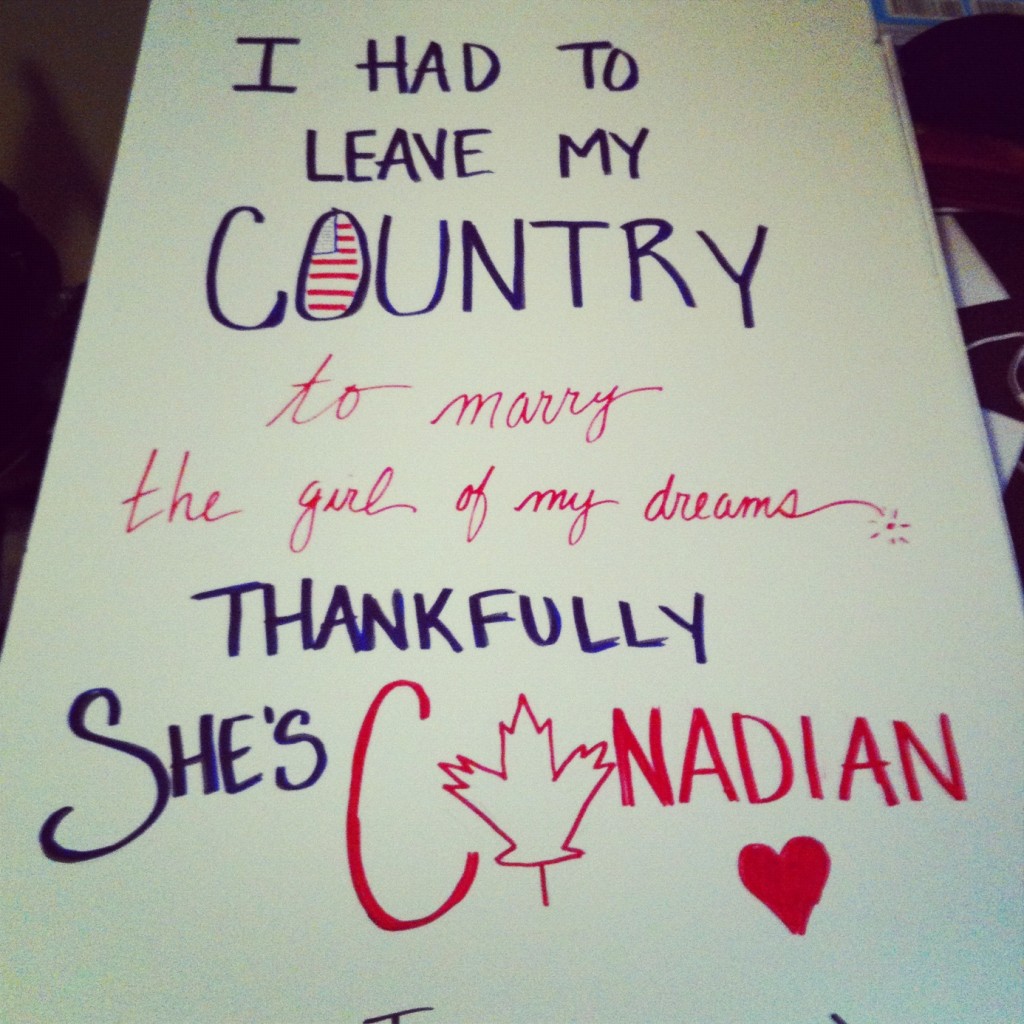 I HAD TO
LEAVE MY
COUNTRY
to marry
the girl of my dreams
THANKFULLY
SHE'S CANADIAN